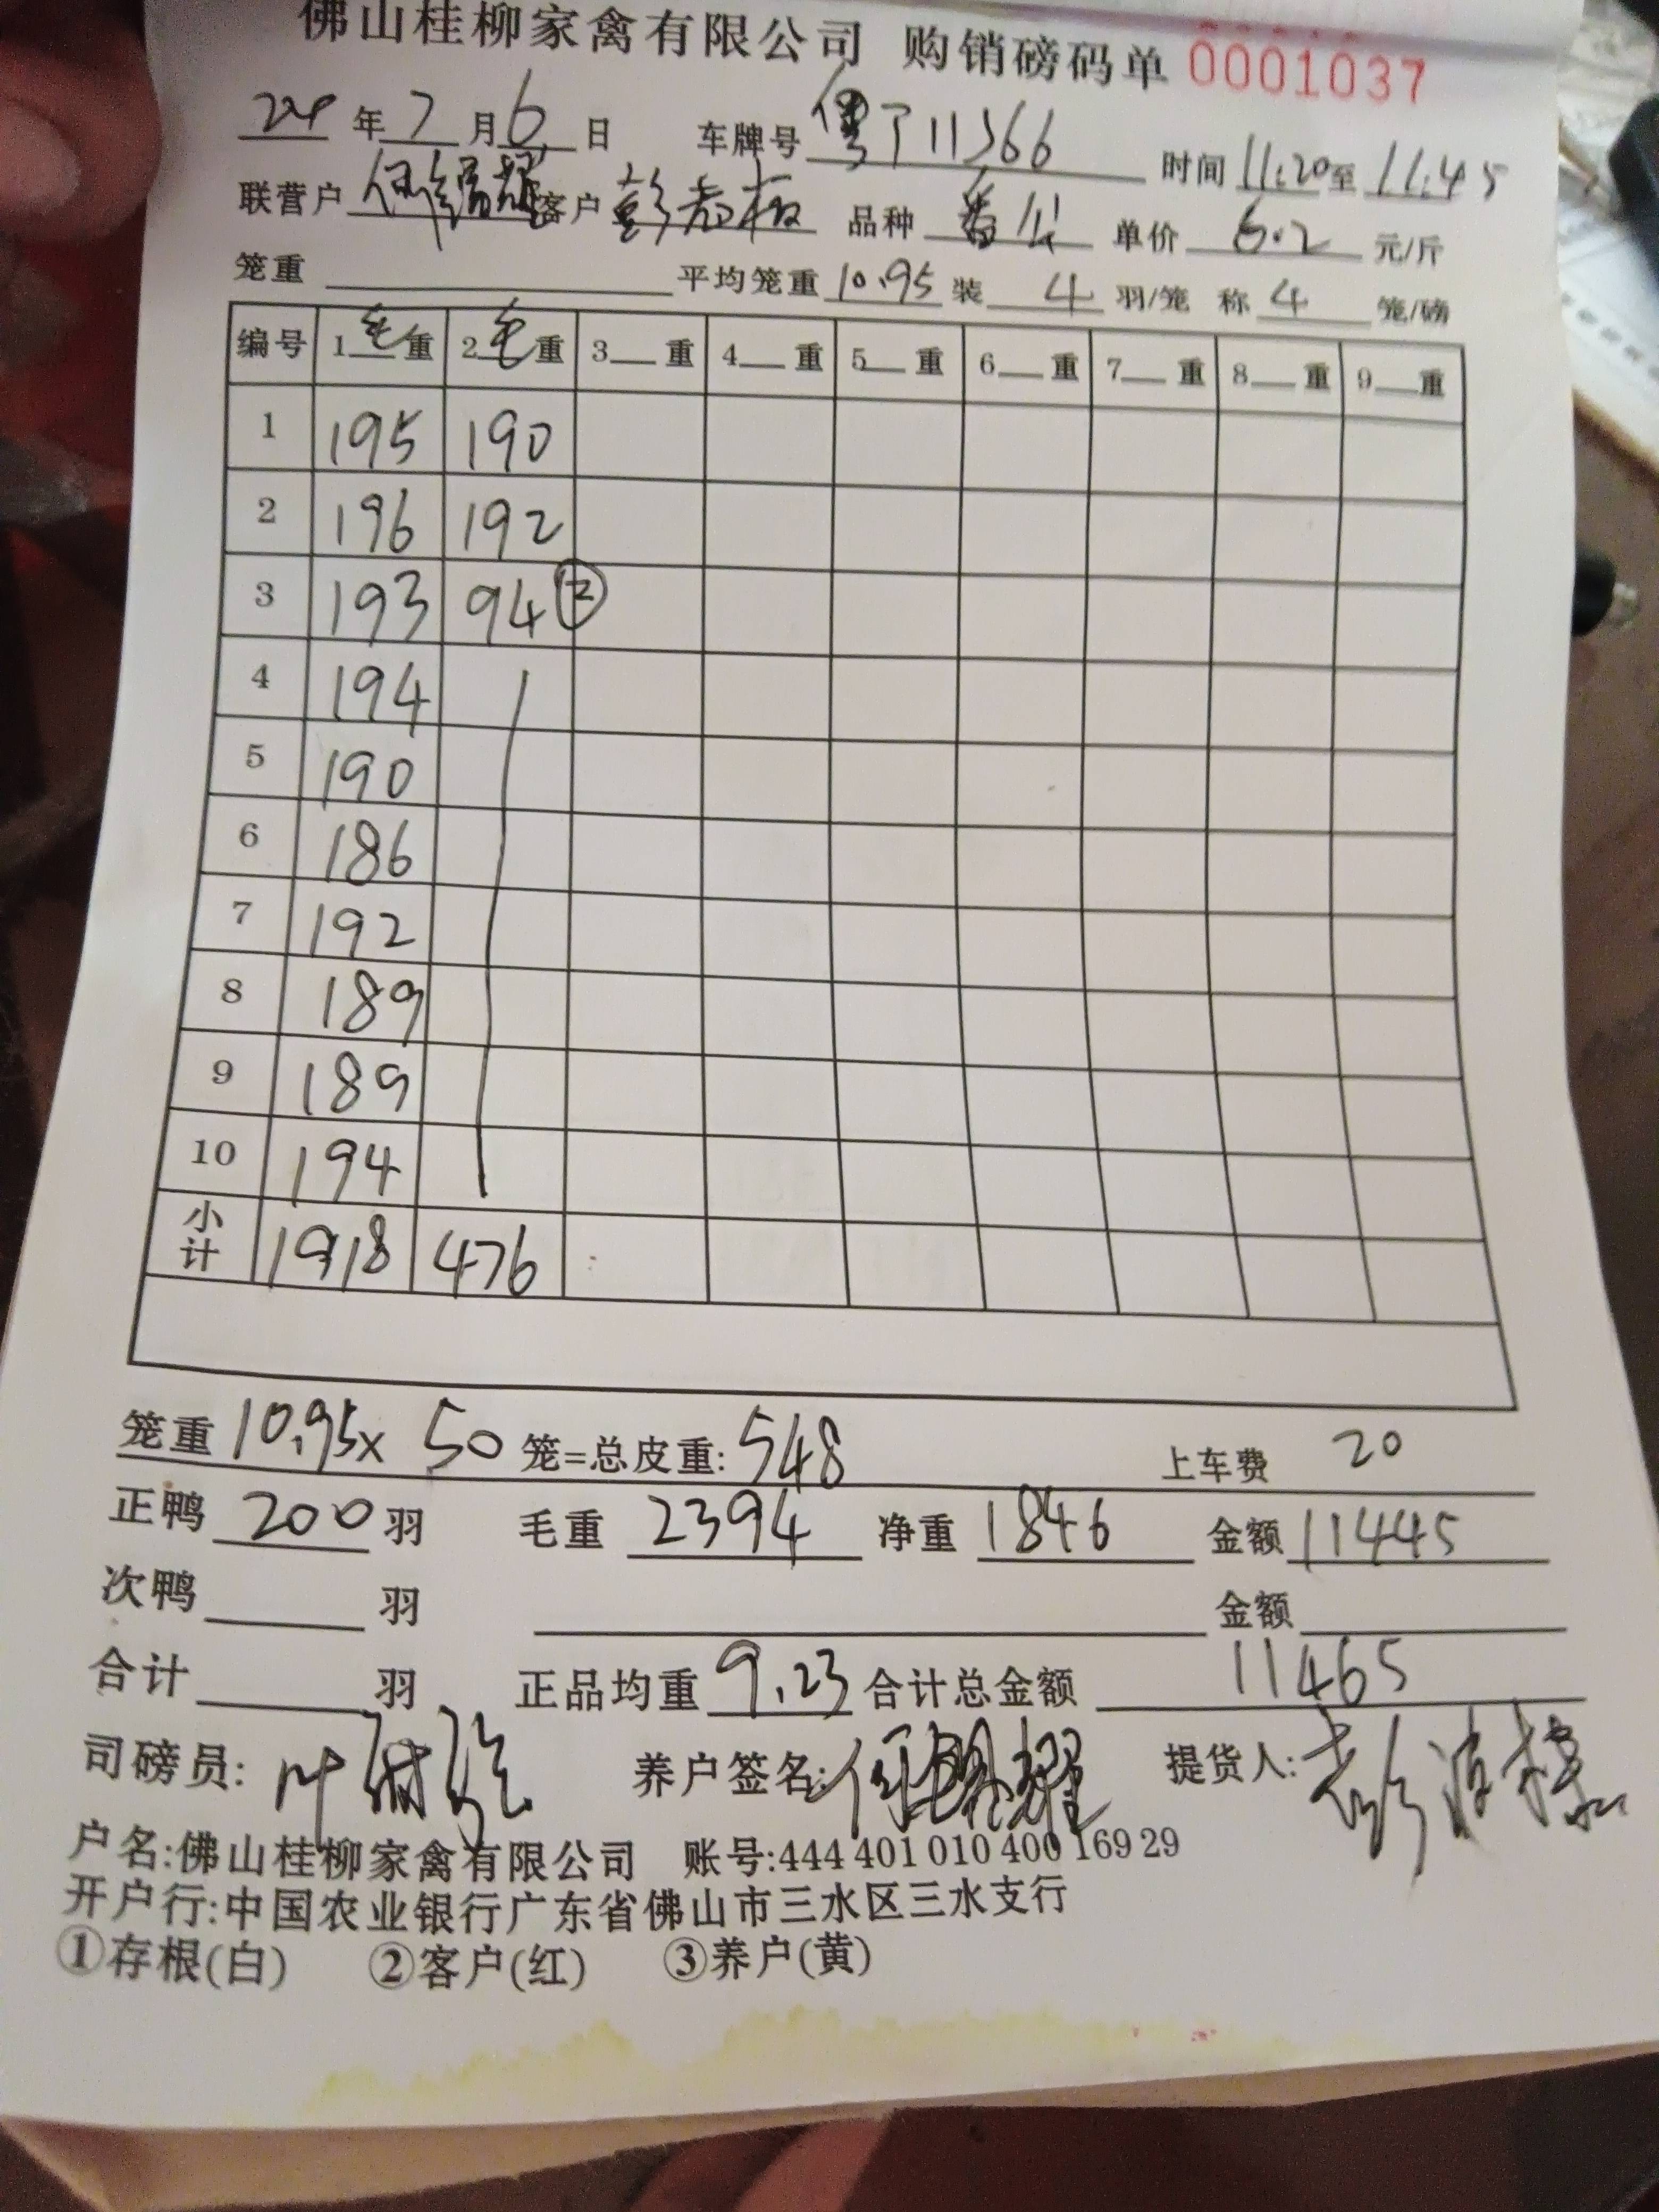 佛山桂柳家禽有限公司 购销磅码单 0001037
24年7月6日 车牌号 粤J11366 时间11:20至11:45
联营户 客户彭老板 品种 番公 单价 6.2 元/斤
笼重 平均笼重10.95装 4 羽/笼 称 4 笼/磅
编号 1毛重 2毛重 3 重 4 重 5 重 6 重 7 重 8 重 9 重
1 195 190
2 196 192
3 193 94 ②
4 194
5 190
6 186
7 192
8 189
9 189
10 194
小计 1918 476
笼重10.95x 50 笼=总皮重:548 上车费 20
正鸭 200 羽 毛重 2394 净重 1846 金额 11445
次鸭 羽 金额
合计 羽 正品均重 9.23 合计总金额 11465
司磅员: 养户签名: 提货人:
户名:佛山桂柳家禽有限公司 账号:444 401 010 400 169 29
开户行:中国农业银行广东省佛山市三水区三水支行
①存根(白) ②客户(红) ③养户(黄)